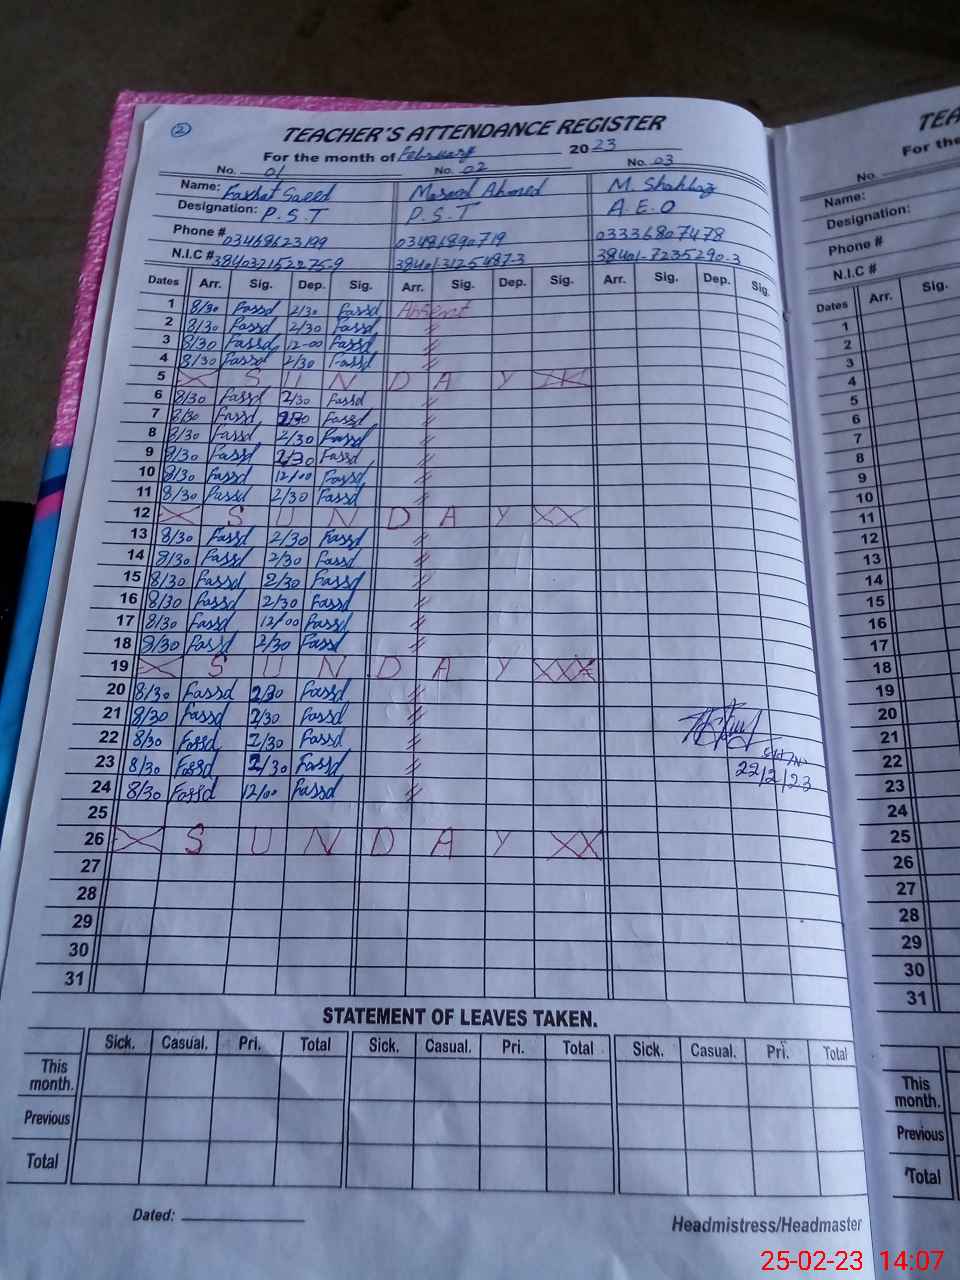 2
TEACHER'S ATTENDANCE REGISTER
For the month of February 2023
No. 01 No. 02 No. 03
Name: Farhat Saeed Masood Ahmed M. Shahbaz
Designation: P.S.T P.S.T A.E.O
Phone # 03468623199 03481690719 03336807478
N.I.C # 384032152275-9 38401-3125487-3 38401-7235290-3
Dates Arr. Sig. Dep. Sig. Arr. Sig. Dep. Sig. Arr. Sig. Dep. Sig.
1 8/30 Fassd 2/30 Fassd Absent
2 8/30 Fassd 2/30 Fassd //
3 8/30 Fassd 12-00 Fassd //
4 8/30 Fassd 2/30 Fassd //
5 X S U N D A Y XX
6 8/30 Fassd 2/30 Fassd //
7 8/30 Fassd 2/30 Fassd //
8 8/30 Fassd 2/30 Fassd //
9 8/30 Fassd 2/30 Fassd //
10 8/30 Fassd 12/00 Fassd //
11 8/30 Fassd 2/30 Fassd //
12 X S U N D A Y XX
13 8/30 Fassd 2/30 Fassd //
14 8/30 Fassd 2/30 Fassd //
15 8/30 Fassd 2/30 Fassd //
16 8/30 Fassd 2/30 Fassd //
17 8/30 Fassd 12/00 Fassd //
18 8/30 Fassd 2/30 Fassd //
19 X S U N D A Y XXX
20 8/30 Fassd 2/30 Fassd //
21 8/30 Fassd 2/30 Fassd //
22 8/30 Fassd 2/30 Fassd //
23 8/30 Fassd 2/30 Fassd // 22/2/23
24 8/30 Fassd 12/00 Fassd //
25
26 X S U N D A Y XX
27
28
29
30
31
STATEMENT OF LEAVES TAKEN.
Sick. Casual. Pri. Total Sick. Casual. Pri. Total Sick. Casual. Pri. Total
This month.
Previous
Total
Dated:
Headmistress/Headmaster
TEA
For the
No.
Name:
Designation:
Phone #
N.I.C #
Dates Arr. Sig.
1
2
3
4
5
6
7
8
9
10
11
12
13
14
15
16
17
18
19
20
21
22
23
24
25
26
27
28
29
30
31
This month.
Previous
Total
25-02-23 14:07